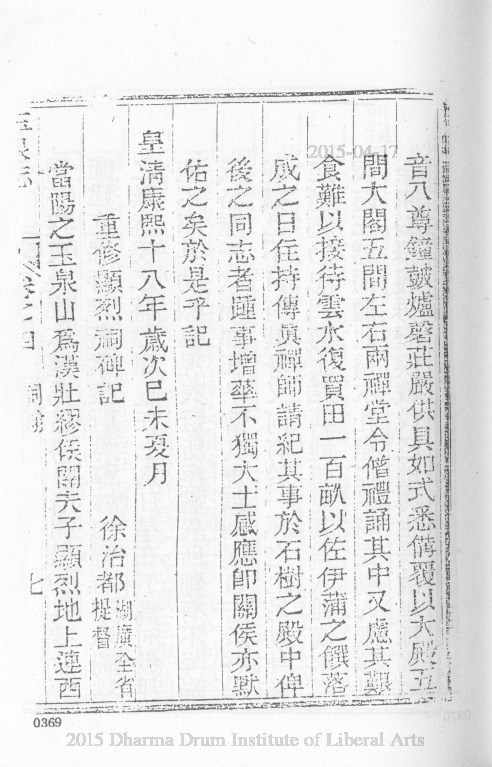 音八尊鐘皷爐磬莊嚴供具如式悉備覆以大殿五
間大閣五間左右兩禪堂令僧禮誦其中又慮其艱
食難以接待雲水復買田一百畝以佐伊蒲之饌落
成之日住持傳眞禪師請紀其事於石樹之殿中俾
後之同志者踵事增華不獨大士感應卽關侯亦默
佑之矣於是乎記
皇清康熙十八年歲次己未夏月
重修顯烈祠碑記
徐治都 湖廣全省提督
當陽之玉泉山爲漢壯繆侯關夫子顯烈地上連西
卷之四
七
2015-04-17
0369
2015 Dharma Drum Institute of Liberal Arts